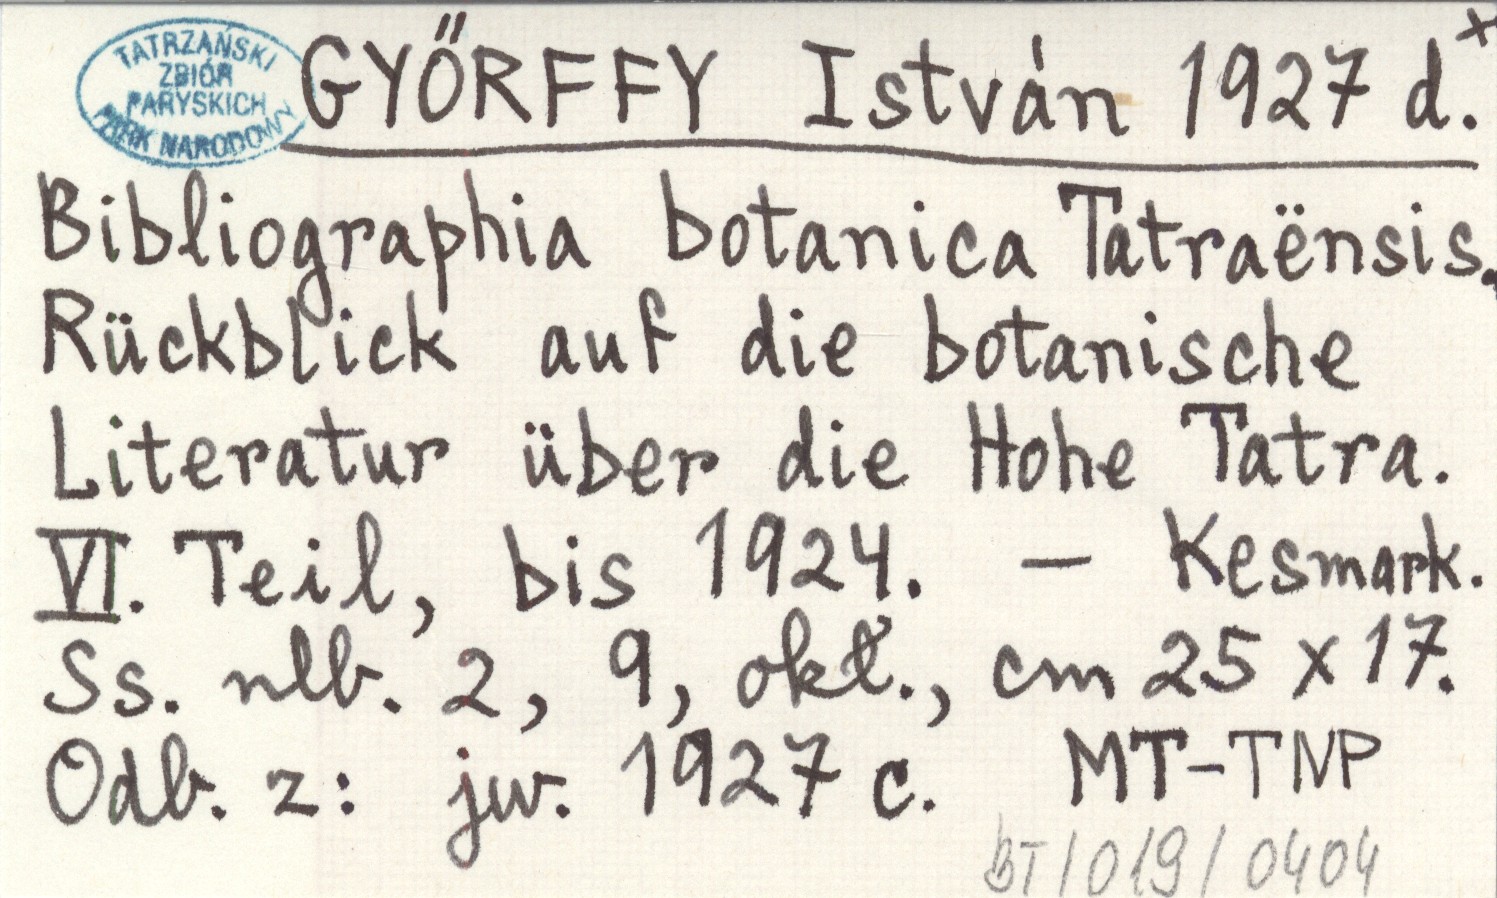 TATRZAŃSKI
ZBIÓR
PARYSKICH
PARK NARODOWY
GYŐRFFY István 1927 d.x
Bibliographia botanica Tatraënsis.
Rückblick auf die botanische
Literatur über die Hohe Tatra.
VI. Teil, bis 1924. – Kesmark.
Ss. nlb. 2, 9, okł., cm 25 x 17.
Odb. z: jw. 1927 c. MT-TNP
BT/019/0404